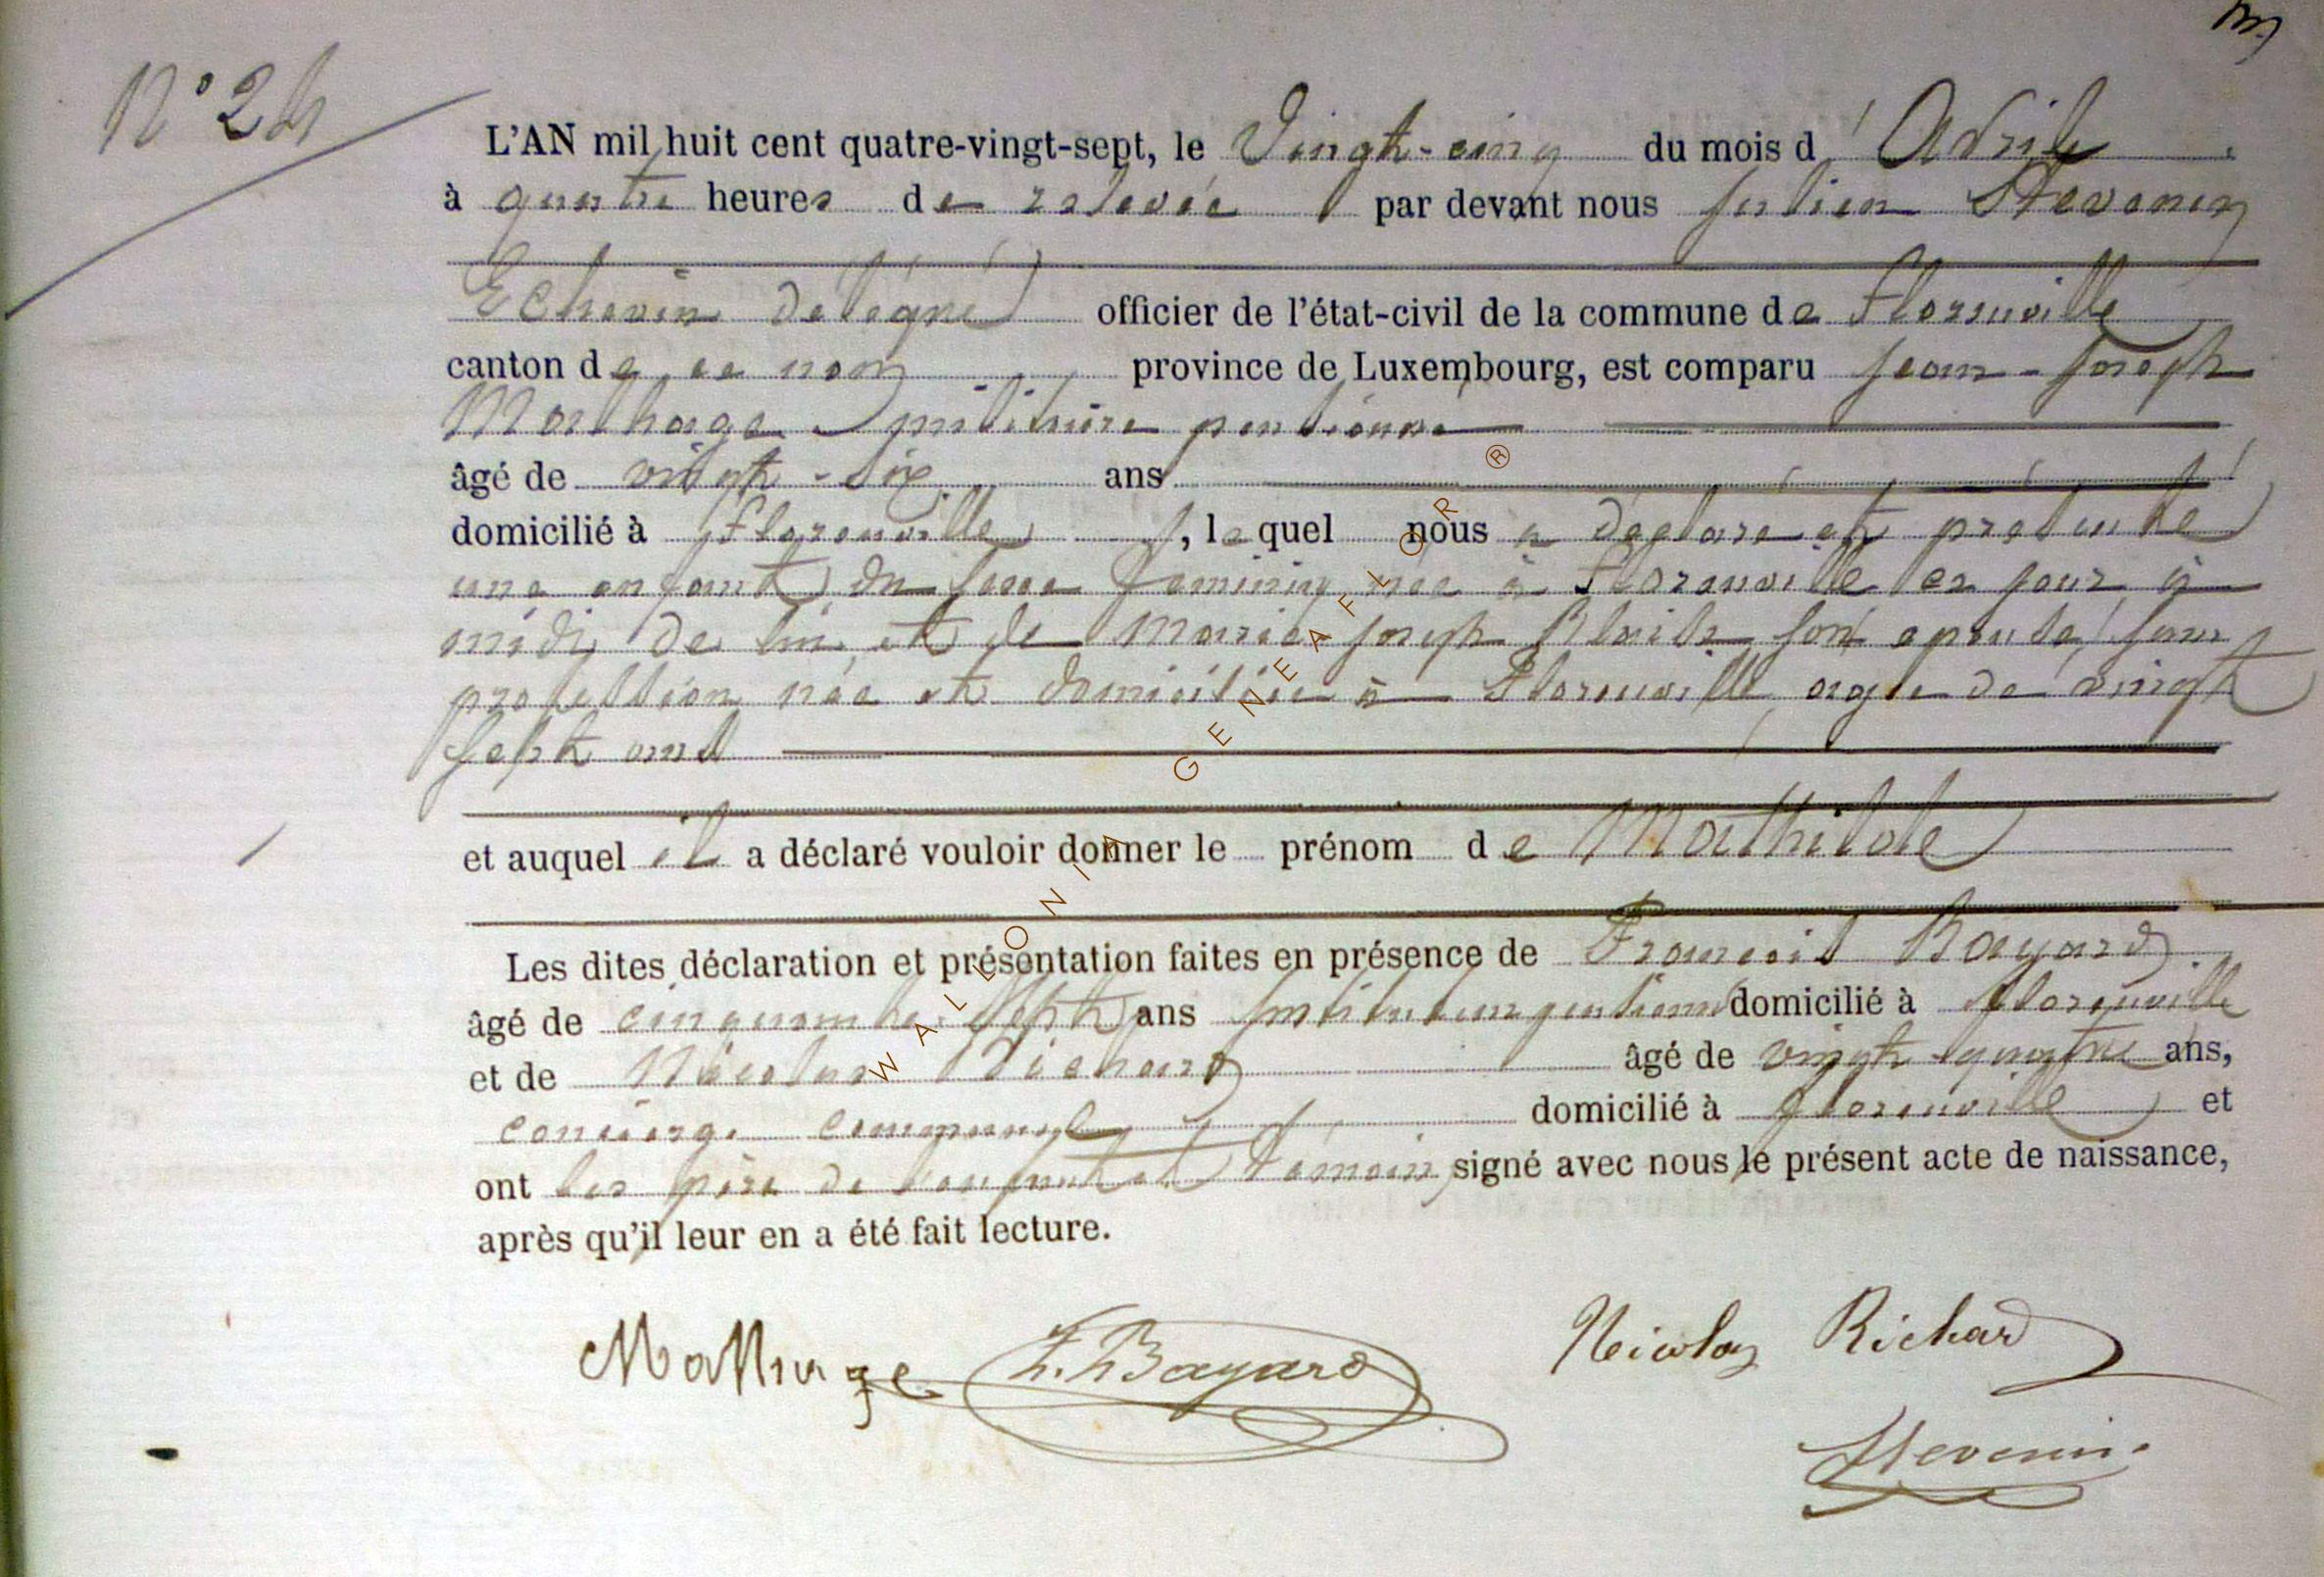 N° 24
L'AN mil huit cent quatre-vingt-sept, le Vingt-cinq du mois d'Avril
à quatre heures de relevée par devant nous Julien Stevenin
Echevin délégué officier de l'état-civil de la commune de Florenville
canton de ce nom province de Luxembourg, est comparu Jean-Joseph
Mathage militaire pensionné
âgé de vingt-six ans
domicilié à Florenville, lequel nous a déclaré et présenté
une enfant du sexe féminin née à Florenville ce jour à
midi de lui et de Marie Joseph son épouse sans
profession née et domiciliée à Florenville agée de vingt
sept ans
et auquel il a déclaré vouloir donner le prénom de Mathilde
Les dites déclaration et présentation faites en présence de François Bayard
âgé de cinquante-sept ans instituteur pensionné domicilié à Florenville
et de Nicolas Richard âgé de vingt-quatre ans,
concierge communal domicilié à Florenville et
ont les père de l'enfant et témoins signé avec nous le présent acte de naissance,
après qu'il leur en a été fait lecture.
Mathage F. Bayard Nicolas Richard
Stevenin
WALLONIA GENEAFLOR ®